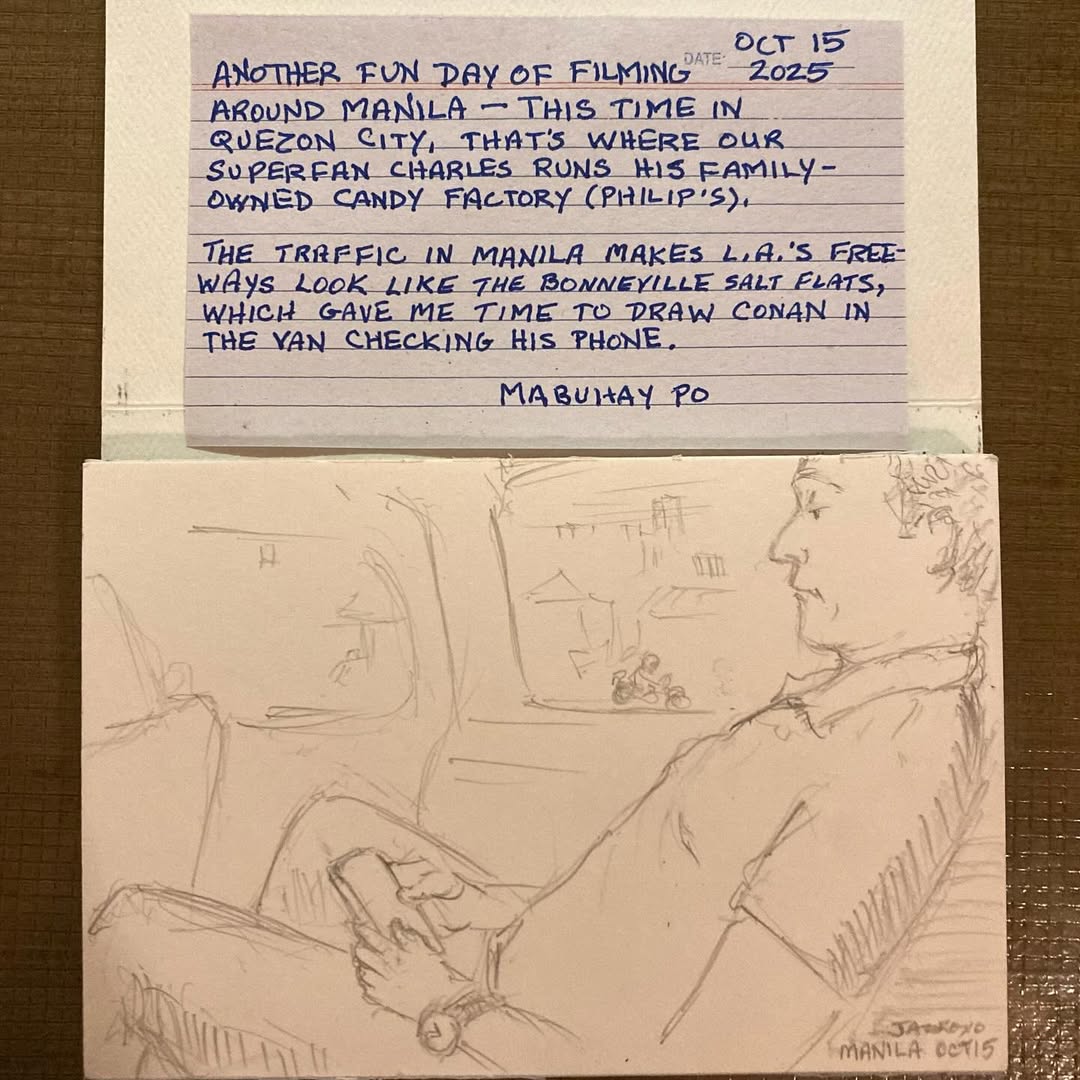 OCT 15
DATE: 2025
ANOTHER FUN DAY OF FILMING
AROUND MANILA — THIS TIME IN
QUEZON CITY, THAT'S WHERE OUR
SUPERFAN CHARLES RUNS HIS FAMILY-
OWNED CANDY FACTORY (PHILIP'S).
THE TRAFFIC IN MANILA MAKES L.A.'S FREE-
WAYS LOOK LIKE THE BONNEVILLE SALT FLATS,
WHICH GAVE ME TIME TO DRAW CONAN IN
THE VAN CHECKING HIS PHONE.
MABUHAY PO
MANILA OCT15